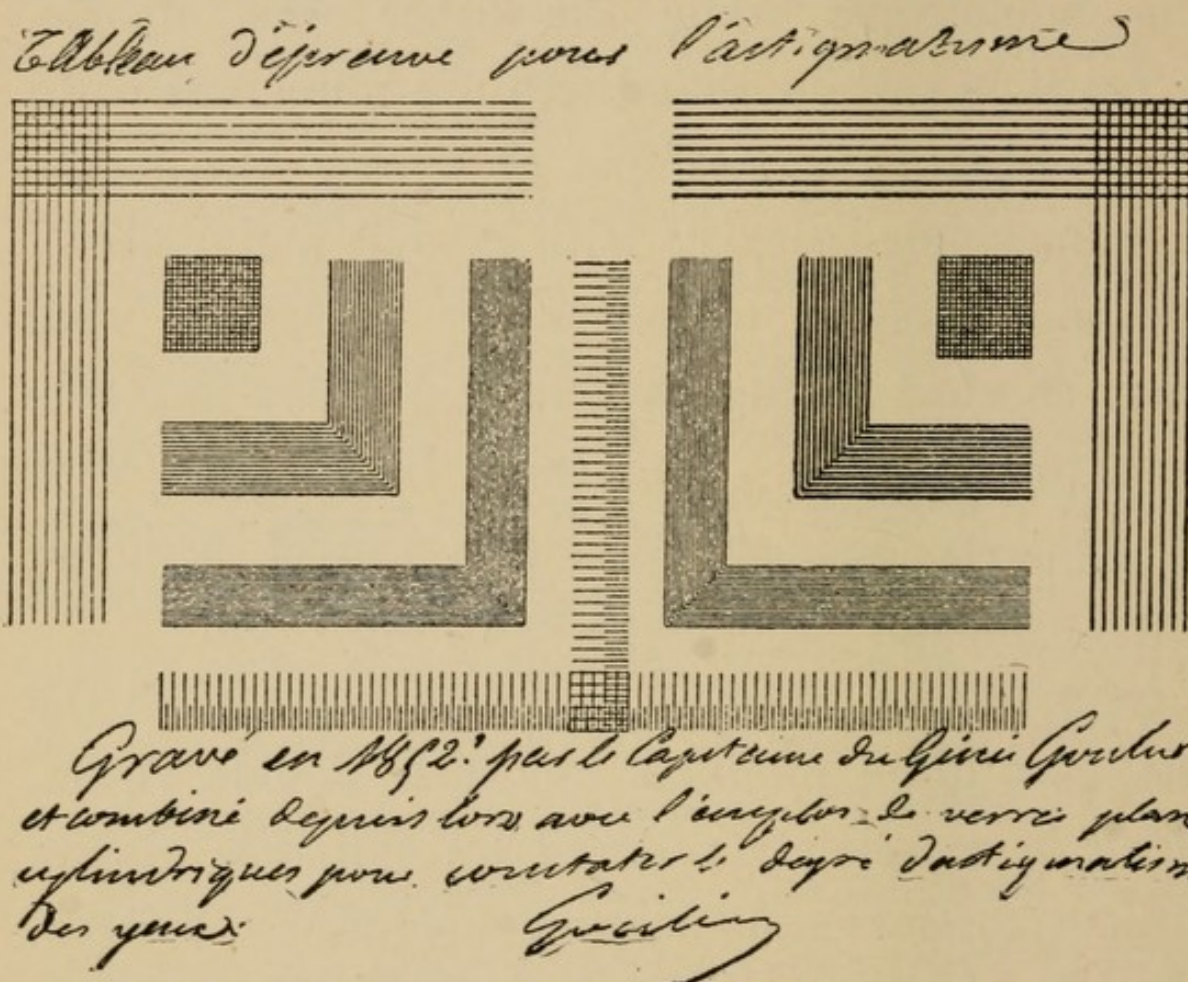 Tableau d'épreuve pour l'astigmatisme
Gravé en 1852? par le Capitaine du Génie Goulier
et combiné depuis lors avec l'emploi de verres plans
cylindriques pour constater le degré d'astigmatisme
des yeux.
Goulier